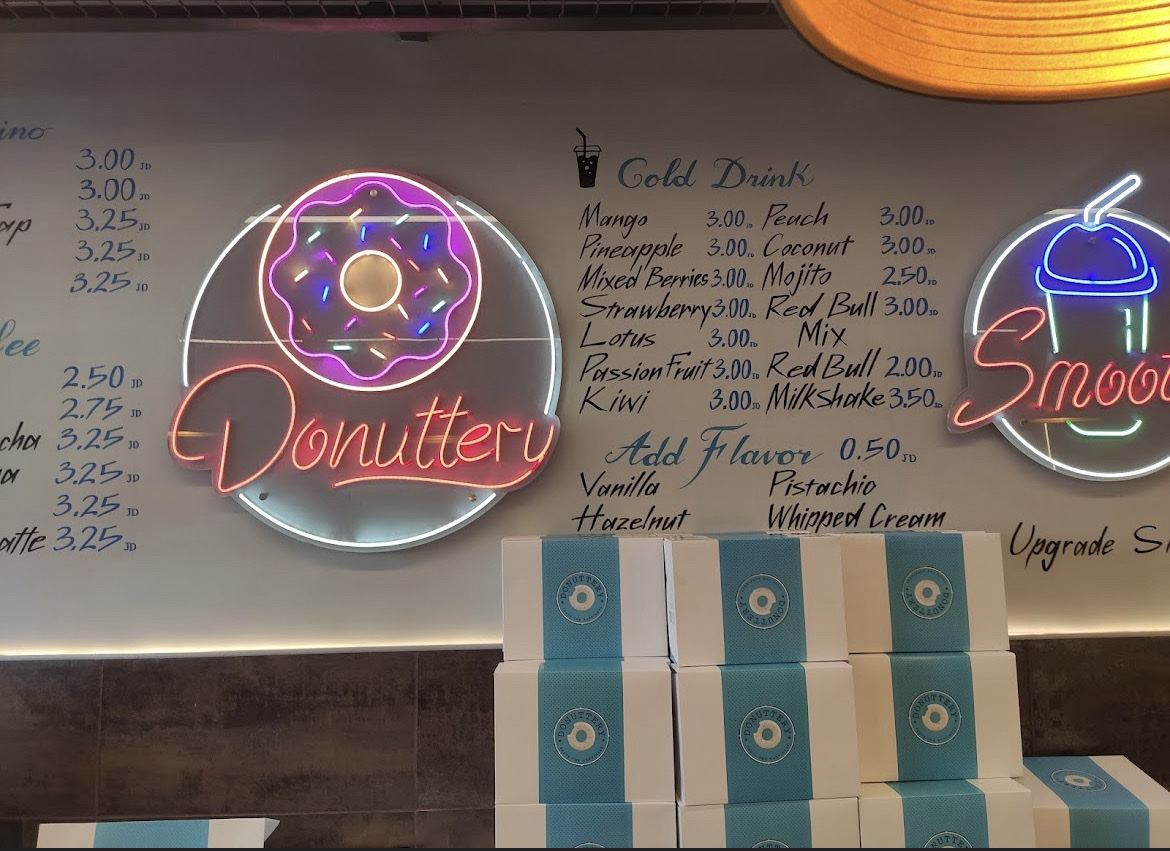 3.00 JD
3.00 JD
3.25 JD
3.25 JD
3.25 JD
2.50 JD
2.75 JD
3.25 JD
3.25 JD
3.25 JD
3.25 JD
Donuttery
Cold Drink
Mango 3.00 JD Peach 3.00 JD
Pineapple 3.00 JD Coconut 3.00 JD
Mixed Berries 3.00 JD Mojito 2.50 JD
Strawberry 3.00 JD Red Bull 3.00 JD
Lotus 3.00 JD Mix
Passion Fruit 3.00 JD Red Bull 2.00 JD
Kiwi 3.00 JD Milkshake 3.50 JD
Add Flavor 0.50 JD
Vanilla Pistachio
Hazelnut Whipped Cream
Smoot
Upgrade
DONUTTERY
DONUTTERY
DONUTTERY
DONUTTERY
DONUTTERY
DONUTTERY